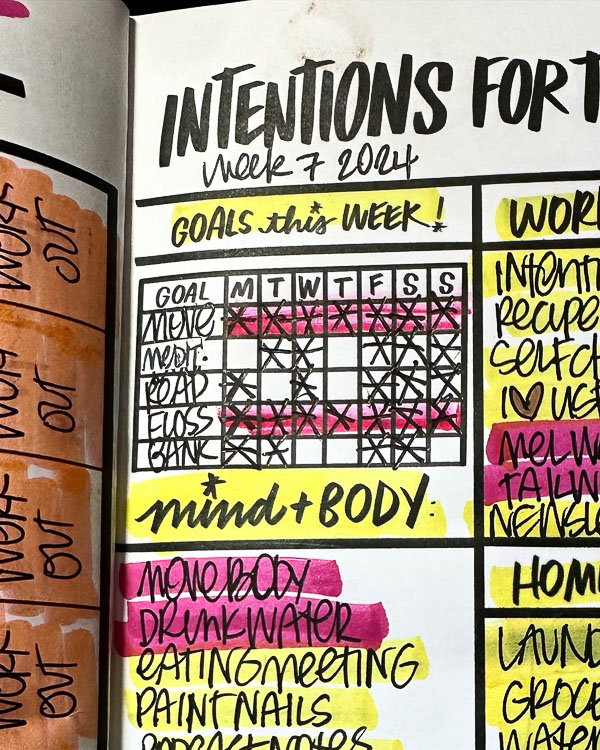 WORK
OUT
WORK
OUT
WORK
OUT
WORK
OUT
INTENTIONS FOR T
week 7 2024
GOALS this WEEK!
GOAL M T W T F S S
MOVE
MEDIT.
READ
FLOSS
BANK
mind + BODY:
MOVE BODY
DRINK WATER
EATING MEETING
PAINT NAILS
PODCAST NOTES
WOR
INTENTI
RECIPE
SELF C
I
MEL W
TAILW
NEWSL
HOM
LAUND
GROCE
WATER